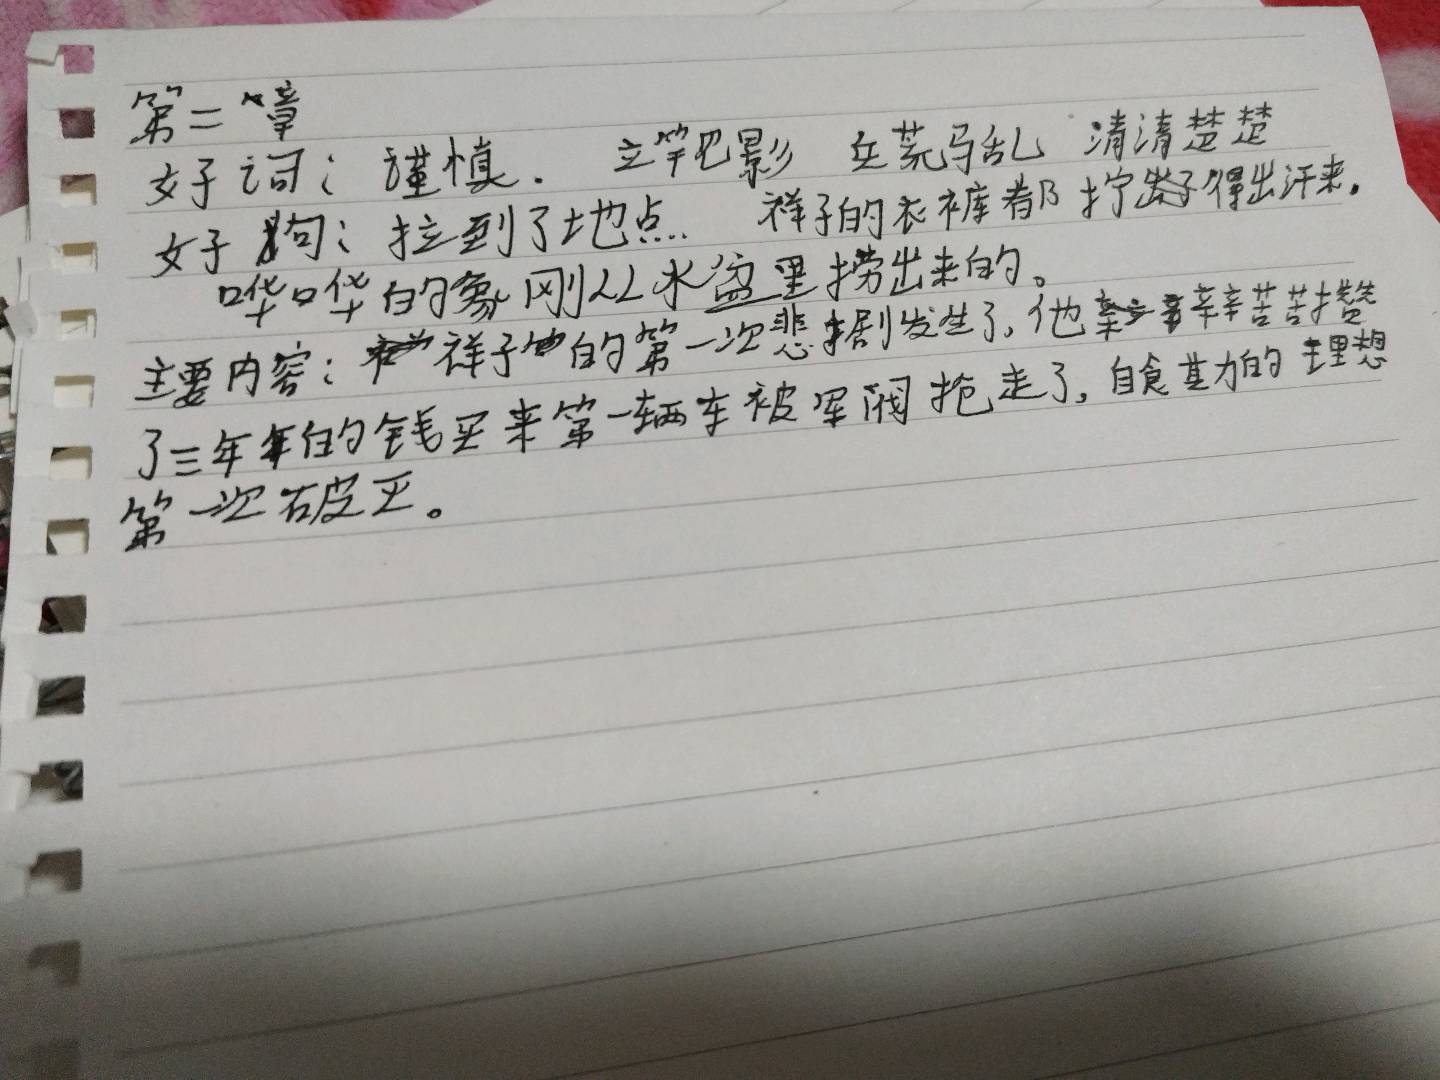 第二章
好词：谨慎. 立竿见影 兵荒马乱 清清楚楚
好句：拉到了地点.. 祥子的衣裤都拧得出汗来。
哗哗的象刚从水盆里捞出来的。
主要内容：祥子的第一次悲剧发生了,他辛辛苦苦攒
了三年的钱买来第一辆车被军阀抢走了,自食其力的理想
第一次破灭。